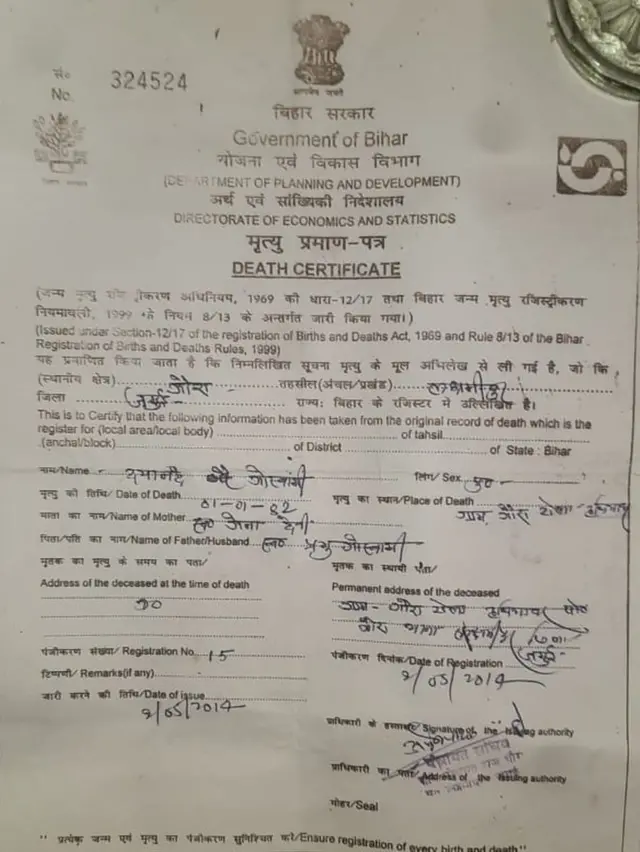 सं०
No. 324524
सत्यमेव जयते
बिहार सरकार
Government of Bihar
योजना एवं विकास विभाग
(DEPARTMENT OF PLANNING AND DEVELOPMENT)
अर्थ एवं सांख्यिकी निदेशालय
DIRECTORATE OF ECONOMICS AND STATISTICS
मृत्यु प्रमाण-पत्र
DEATH CERTIFICATE
(जन्म मृत्यु रजिस्ट्रीकरण अधिनियम, 1969 की धारा-12/17 तथा बिहार जन्म मृत्यु रजिस्ट्रीकरण
नियमावली, 1999 के नियम 8/13 के अन्तर्गत जारी किया गया।)
(Issued under Section-12/17 of the registration of Births and Deaths Act, 1969 and Rule 8/13 of the Bihar
Registration of Births and Deaths Rules, 1999)
यह प्रमाणित किया जाता है कि निम्नलिखित सूचना मृत्यु के मूल अभिलेख से ली गई है, जो कि
(स्थानीय क्षेत्र) तहसील(अंचल/प्रखंड)
जिला जमुई राज्य: बिहार के रजिस्टर में उल्लिखित है।
This is to Certify that the following information has been taken from the original record of death which is the
register for (local area/local body) of tahsil
(anchal/block) of District of State : Bihar
नाम/Name दयानंद गोस्वामी लिंग/ Sex पु०
मृत्यु की तिथि/ Date of Death 01-01-82 मृत्यु का स्थान/Place of Death
माता का नाम/Name of Mother स्व० जैना देवी
पिता/पति का नाम/Name of Father/Husband स्व० प्रभु गोस्वामी
मृतक का मृत्यु के समय का पता/ मृतक का स्थायी पता/
Address of the deceased at the time of death Permanent address of the deceased
जमुई
पंजीकरण संख्या/ Registration No. 15 पंजीकरण दिनांक/Date of Registration
टिप्पणी/ Remarks(if any) 2/05/2014
जारी करने की तिथि/Date of issue
2/05/2014
प्राधिकारी के हस्ताक्षर/ Signature of the issuing authority
पंचायत सचिव
प्राधिकारी का पता/ Address of the issuing authority
मोहर/Seal
" प्रत्येक जन्म एवं मृत्यु का पंजीकरण सुनिश्चित करें/Ensure registration of every birth and death"